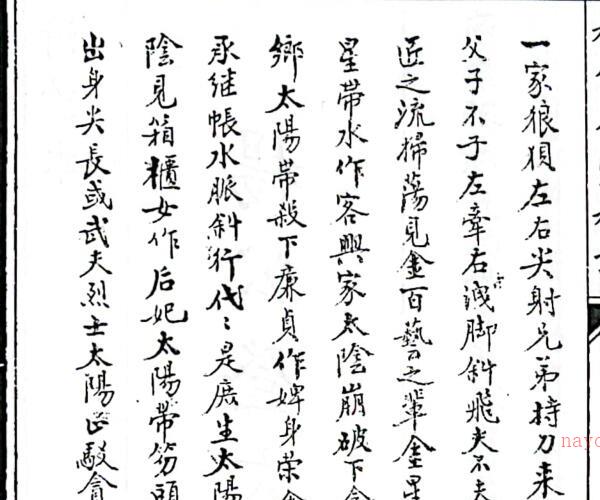 一家狼狽左右尖射兄弟持刀来
父子不子左牽右洩脚斜飛夫不夫
匠之流掃蕩見金百藝之輩金星
星帶水作客興家太陰崩破下
鄉太陽帶殺下廉貞作婢身荣
承继帳水脈斜行代〻是庶生太陽
陰見箱櫃女作后妃太陽帶笏頭
出身尖長或武夫烈士太陽正殿貪
nayo